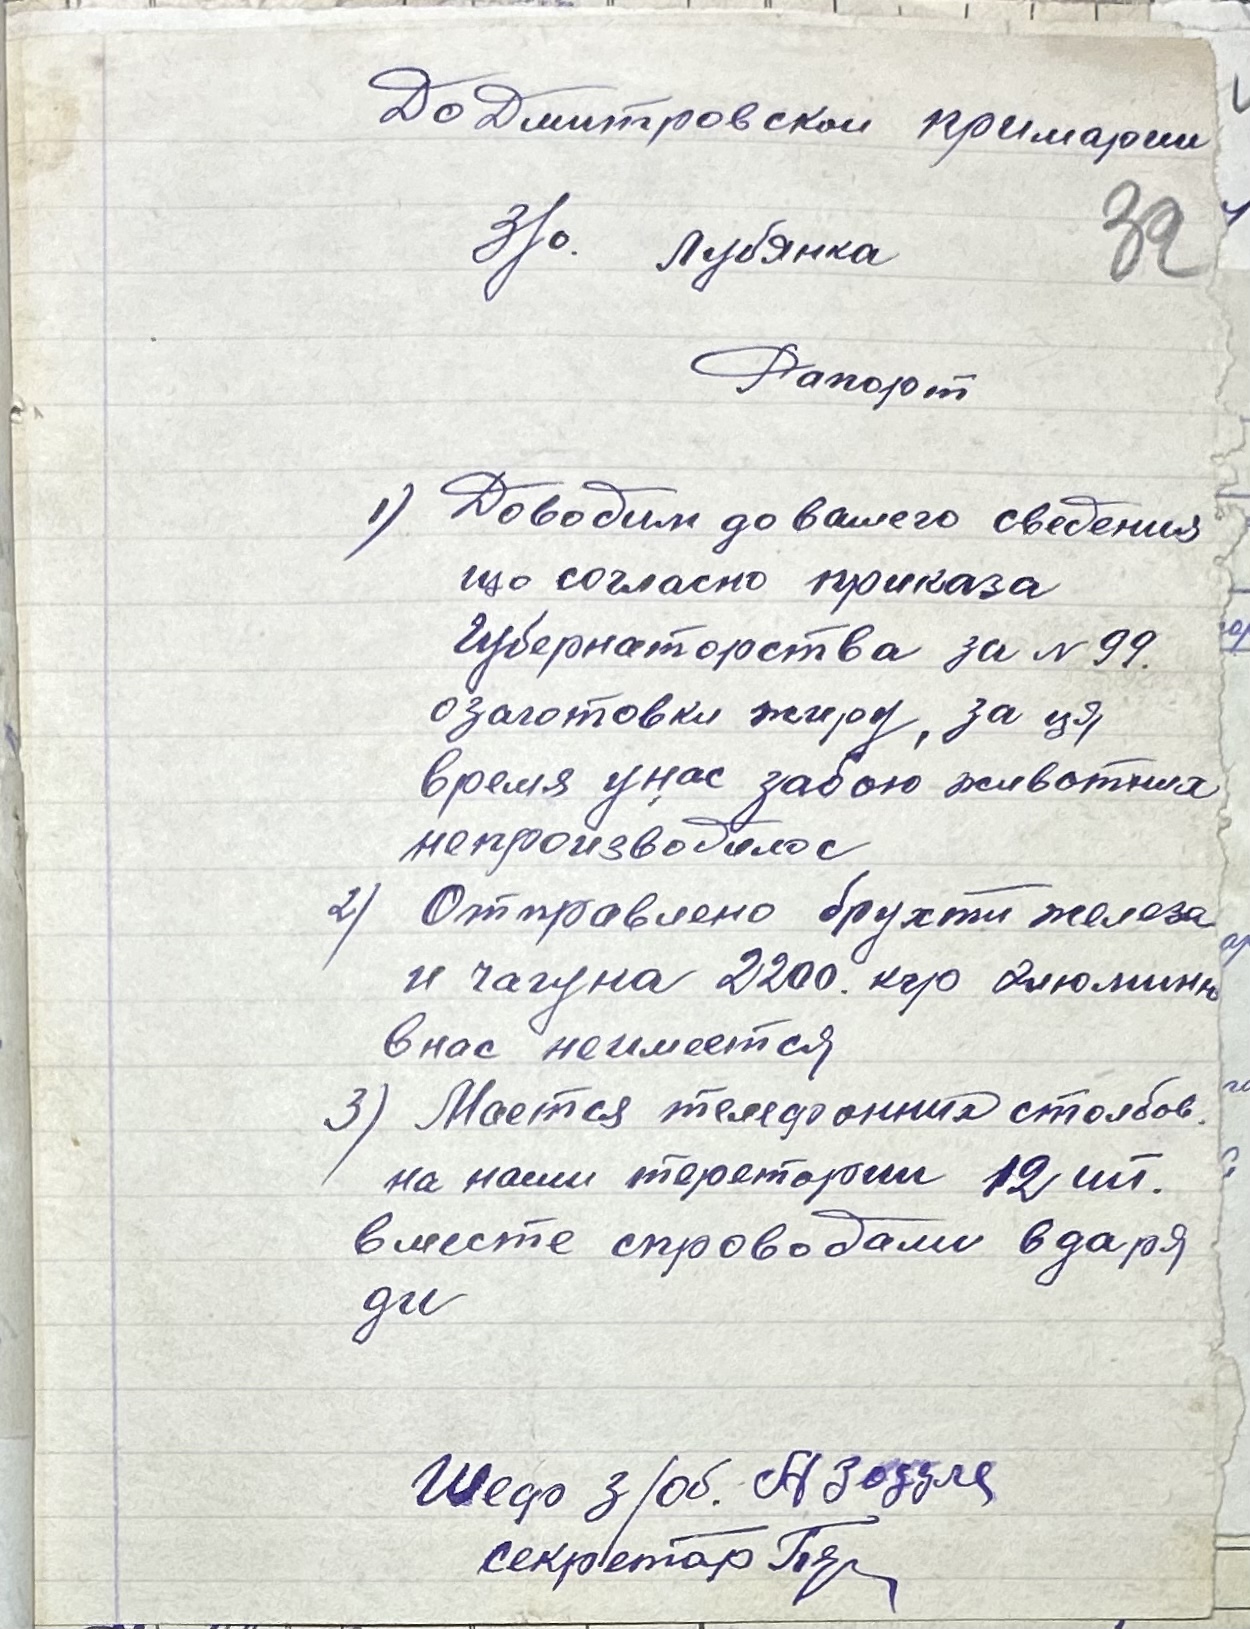 До Дмитровскои примарии
З/о. Лубянка
39
Рапорт
1) Доводим до вашего сведения
що согласно приказа
Губернаторства за N 99.
озаготовки жиру, за ця
время унас забою животних
непроизводилос
2) Отправлено брухти железа
и чагуна 2200. кгр алюминю
внас неимеется
3) Мается телефонних столбов.
на наши теретории 12 шт.
вместе спроводами вдаря
ди
Шеф з/об.
секретар